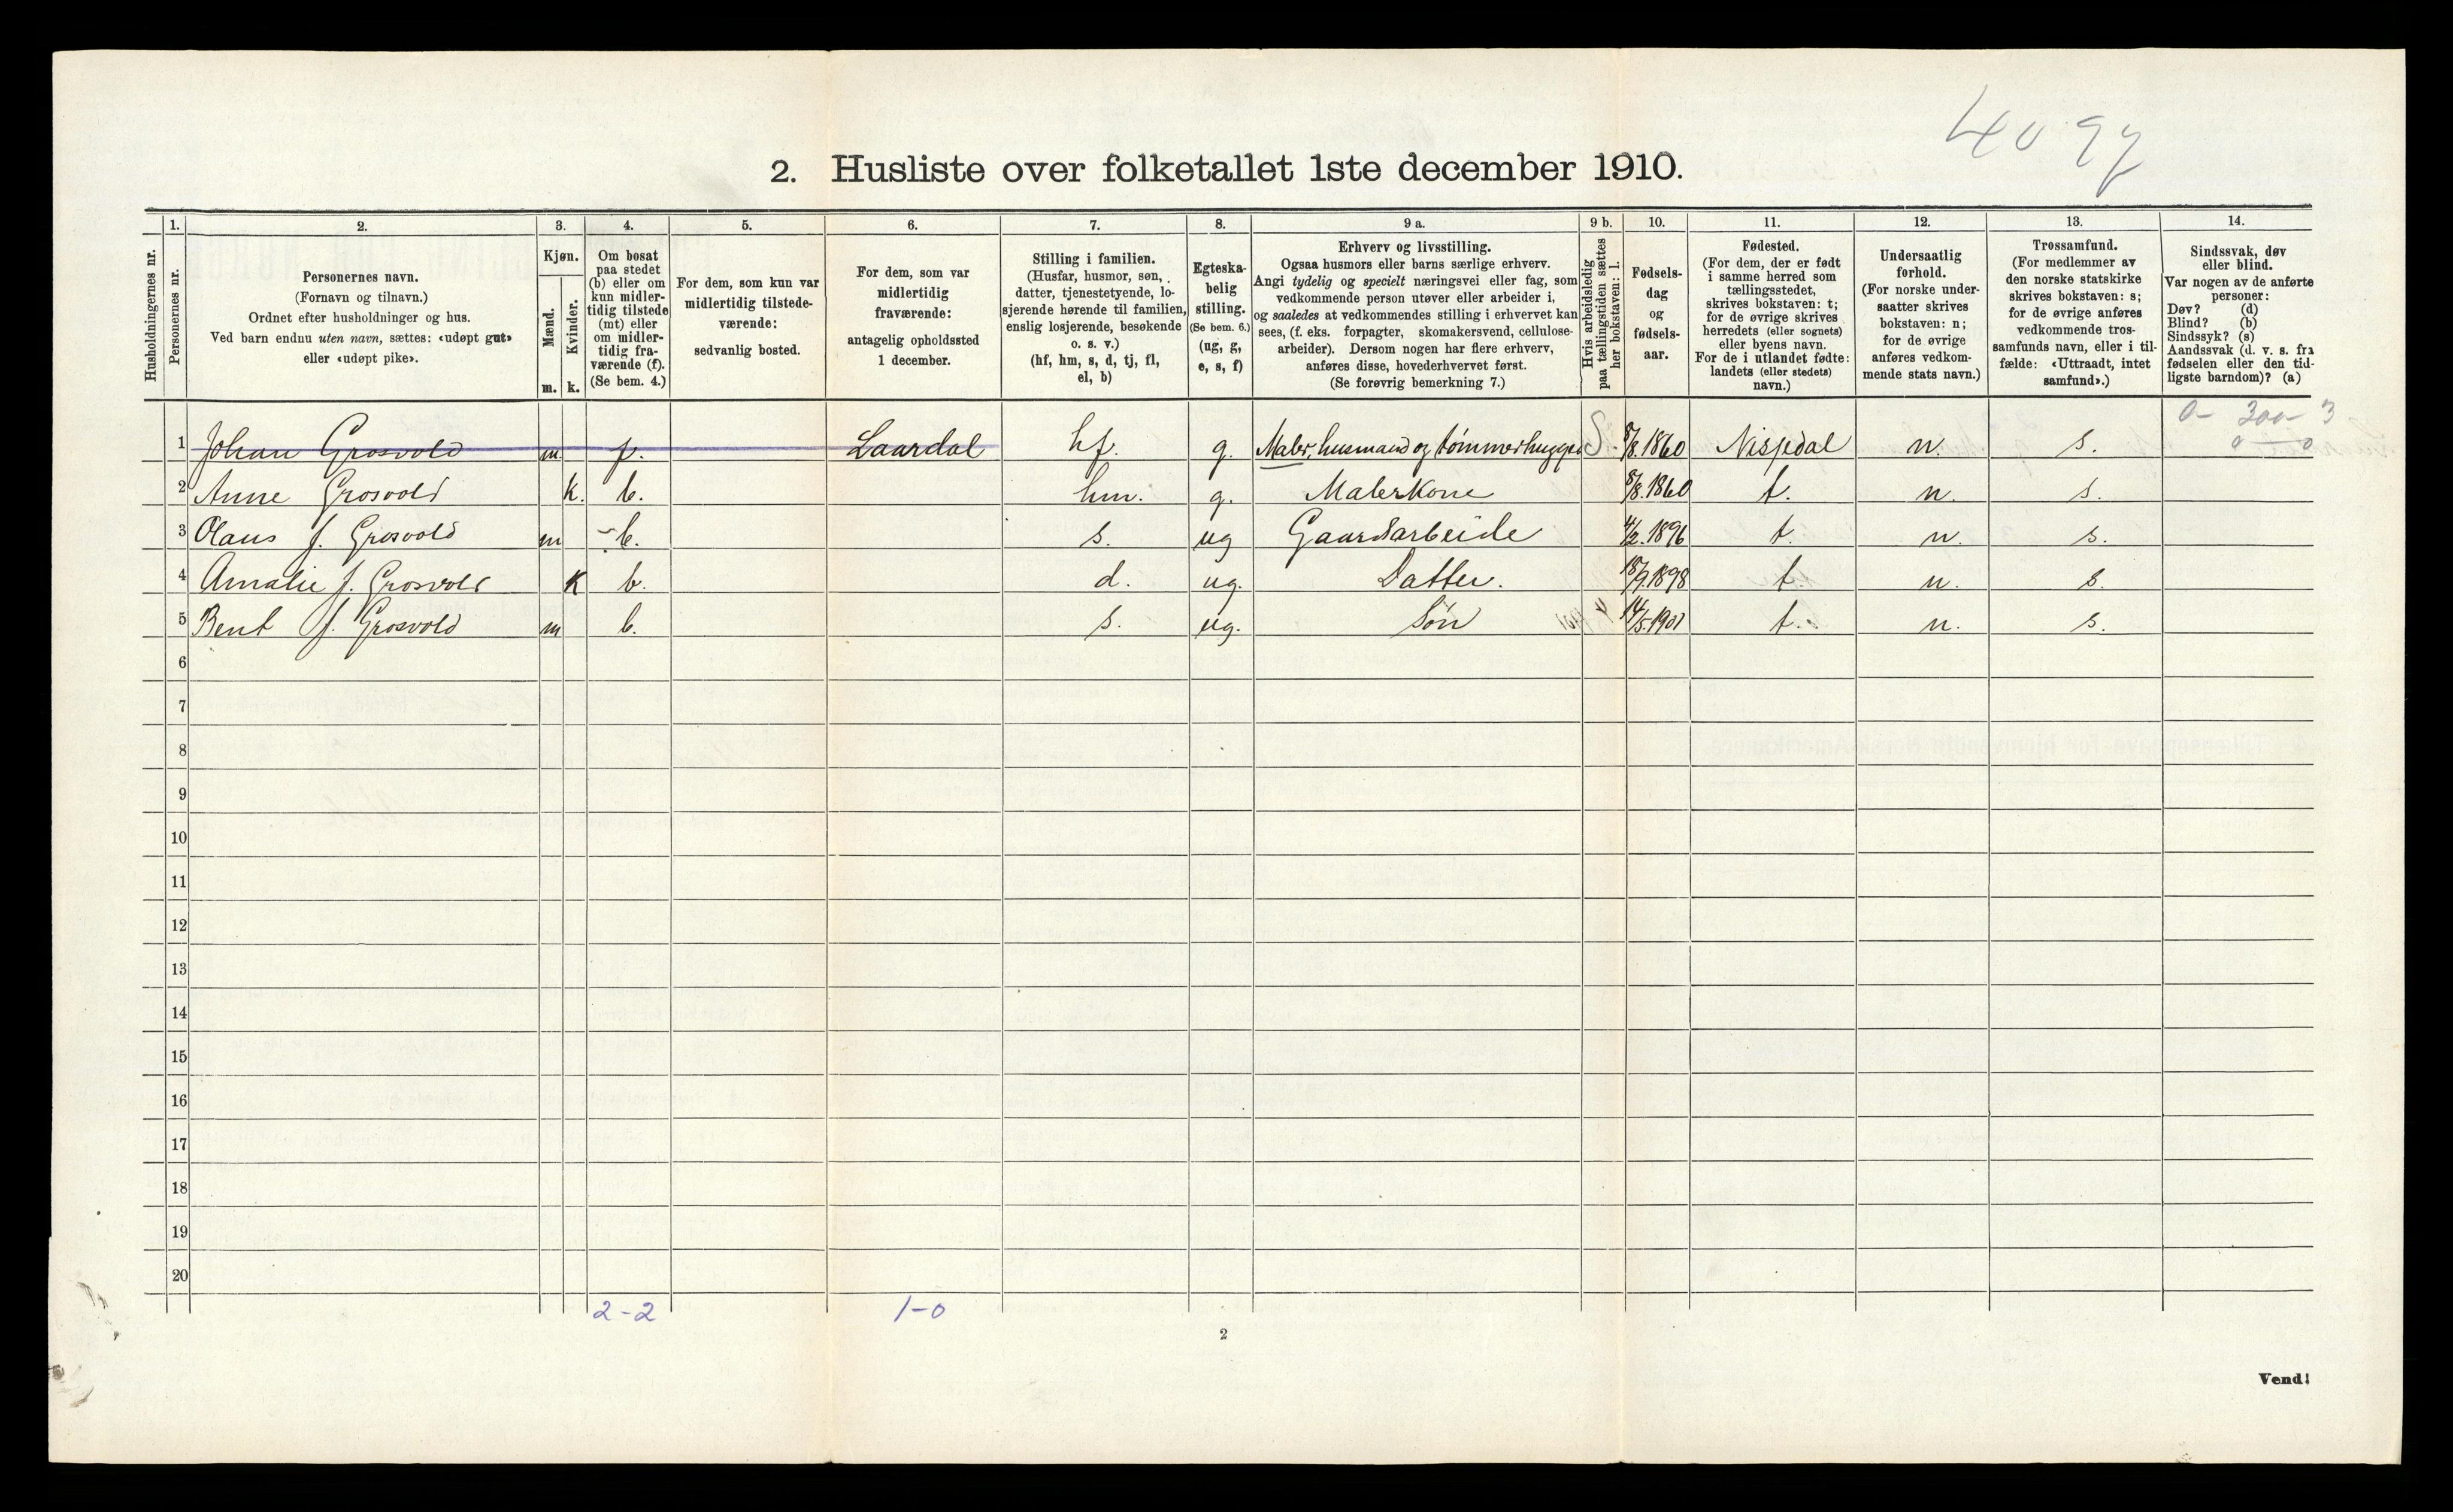 4097
2. Husliste over folketallet 1ste december 1910.
1. 2. 3. 4. 5. 6. 7. 8. 9 a. 9 b. 10. 11. 12. 13. 14.
Husholdningernes nr.
Personernes nr.
Personernes navn.
(Fornavn og tilnavn.)
Ordnet efter husholdninger og hus.
Ved barn endnu uten navn, sættes: «udøpt gut»
eller «udøpt pike».
Kjøn.
Mænd.
m.
Kvinder.
k.
Om bosat
paa stedet
(b) eller om
kun midler-
tidig tilstede
(mt) eller
om midler-
tidig fra-
værende (f).
(Se bem. 4.)
For dem, som kun var
midlertidig tilstede-
værende:
sedvanlig bosted.
For dem, som var
midlertidig
fraværende:
antagelig opholdssted
1 december.
Stilling i familien.
(Husfar, husmor, søn,
datter, tjenestetyende, lo-
sjerende hørende til familien,
enslig losjerende, besøkende
o. s. v.)
(hf, hm, s, d, tj, fl,
el, b)
Egteska-
belig
stilling.
(Se bem. 6.)
(ug, g,
e, s, f)
Erhverv og livsstilling.
Ogsaa husmors eller barns særlige erhverv.
Angi tydelig og specielt næringsvei eller fag, som
vedkommende person utøver eller arbeider i,
og saaledes at vedkommendes stilling i erhvervet kan
sees, (f. eks. forpagter, skomakersvend, cellulose-
arbeider). Dersom nogen har flere erhverv,
anføres disse, hovederhvervet først.
(Se forøvrig bemerkning 7.)
Hvis arbeidsledig
paa tællingstiden sættes
her bokstaven: l.
Fødsels-
dag
og
fødsels-
aar.
Fødested.
(For dem, der er født
i samme herred som
tællingsstedet,
skrives bokstaven: t;
for de øvrige skrives
herredets (eller sognets)
eller byens navn.
For de i utlandet fødte:
landets (eller stedets)
navn.)
Undersaatlig
forhold.
(For norske under-
saatter skrives
bokstaven: n;
for de øvrige
anføres vedkom-
mende stats navn.)
Trossamfund.
(For medlemmer av
den norske statskirke
skrives bokstaven: s;
for de øvrige anføres
vedkommende tros-
samfunds navn, eller i til-
fælde: «Uttraadt, intet
samfund».)
Sindssvak, døv
eller blind.
Var nogen av de anførte
personer:
Døv? (d)
Blind? (b)
Sindssyk? (s)
Aandssvak (d. v. s. fra
fødselen eller den tid-
ligste barndom)? (a)
0- 300- 3
0 - 0
1 Johan Grosvold m. f. Laardal hf. g. Maler, husmand og tømmerhugger S. 8/8.1860 Nissedal n. s.
2 Anne Grosvold k. b. hm. g. Malerkone 8/8.1860 t. n. s.
3 Olaus J. Grosvold m b. s. ug Gaardsarbeide 4/2.1896 t. n. s.
4 Amalie J. Grosvold K b. d. ug. Datter. 18/9 1898 t. n. s.
5 Bent J. Grosvold m b. s. ug. Søn 14/5.1901 t. n. s.
6
7
8
9
10
11
12
13
14
15
16
17
18
19
20
2-2 1-0
2
Vend!